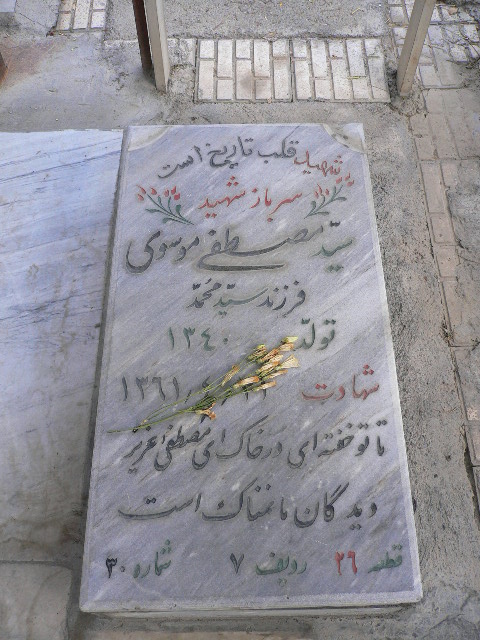 شهید قلب تاریخ است
سرباز شهید
سیّد مصطفی موسوی
فرزند سیّد محمّد
تولّد ۱۳٤۰
شهادت ۱۳٦۱
تا تو خفته ای در خاک ای مصطفی عزیز
دیدگان ما نمناک است
قطعه ۲٦ ردیف ۷ شماره ۳۰